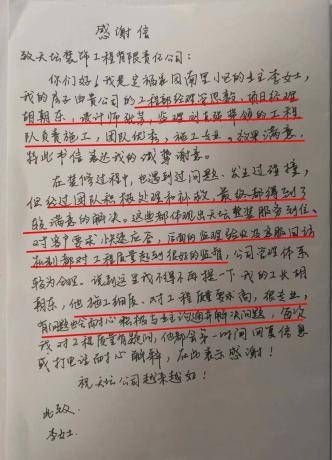 感谢信
致天坛装饰工程有限责任公司：
你们好！我是幸福家园南里小区的业主李女士，
我的房子由贵公司的工程部经理 项目经理
胡朝东，设计师张芳，监理刘玉强带领的工程
队负责施工，团队优秀，施工专业，效果满意，
特此书信表达我的诚挚谢意。
在装修过程中，也遇到过、发生过碰撞，
但经过团队积极处理和补救，最终都得到了
较满意的解决。这些都体现出天坛整装服务到位，
对客户要求快速应答，后面的监理验收及客服回访
机制都对工程质量起到很好的监督，公司管理体系
较为合理。说到这里我不得不再提一下我的工长胡
朝东，他施工细度，对工程质量要求高，很专业，
有问题也会耐心积极与业主沟通并解决问题，每次
我对工程质量有疑问，他都会第一时间回复信息
或打电话耐心解释，在此表示感谢！
祝天坛公司越来越好！
此致
李女士